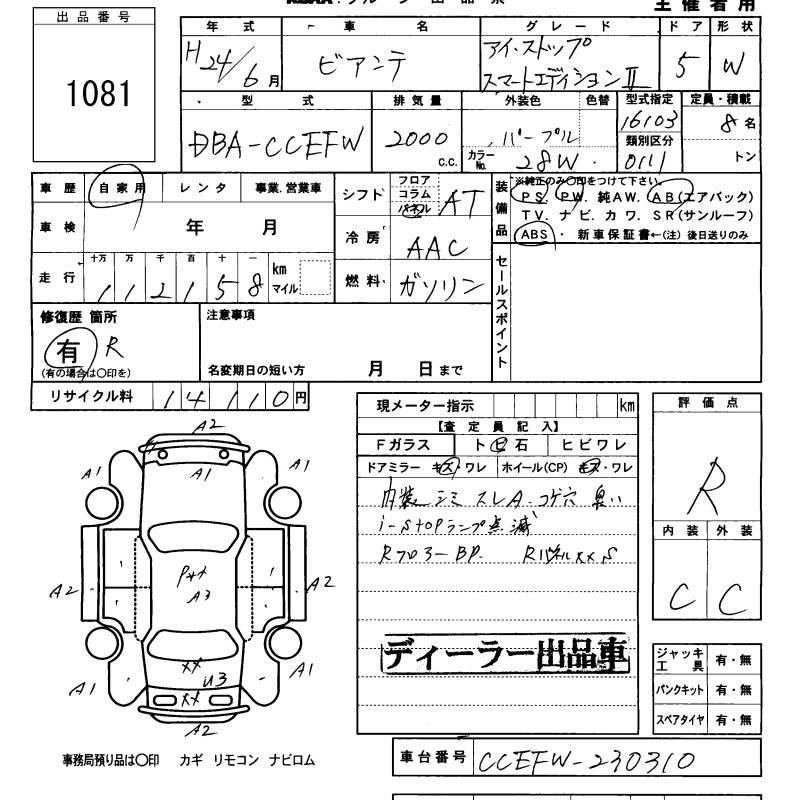 主催者用
出品番号
1081
年式 車名 グレード ドア 形状
H24/6月 ビアンテ アイ・ストップ 5 W
スマートエディションII
型式 排気量 外装色 色替 型式指定 定員・積載
DBA-CCEFW 2000 c.c. パープル 16103 8名
カラーNo. 28W 類別区分 0111 トン
車歴 自家用 レンタ 事業.営業車
シフト フロア コラム パネル AT
装備品 ※純正のみ〇印をつけて下さい。
PS. PW. 純AW. AB(エアバック)
TV. ナビ. カワ. SR(サンルーフ)
ABS・ 新車保証書←(注)後日送りのみ
車検 年 月
冷房 AAC
走行 十万 万 千 百 十 一
112158 km マイル
燃料 ガソリン
セールスポイント
修復歴 箇所
有 R
(有の場合は〇印を)
注意事項
名変期日の短い方 月 日まで
リサイクル料 14110円
現メーター指示 km
【査定員記入】
Fガラス ト ビ 石 ヒビワレ
ドアミラー キズ・ワレ ホイール(CP) キズ・ワレ
内装シミ スレA. コゲ穴 臭い
i-STOPランプ点滅
Rフロアー BP. Rパネルxx S
ディーラー出品車
評価点
R
内装 外装
C C
ジャッキ工具 有・無
パンクキット 有・無
スペアタイヤ 有・無
A2
A1 A1 A1
A2 A3 A2
XX
A1 U3 A1
XX
A2
事務局預り品は〇印 カギ リモコン ナビロム
車台番号 CCEFW-230310